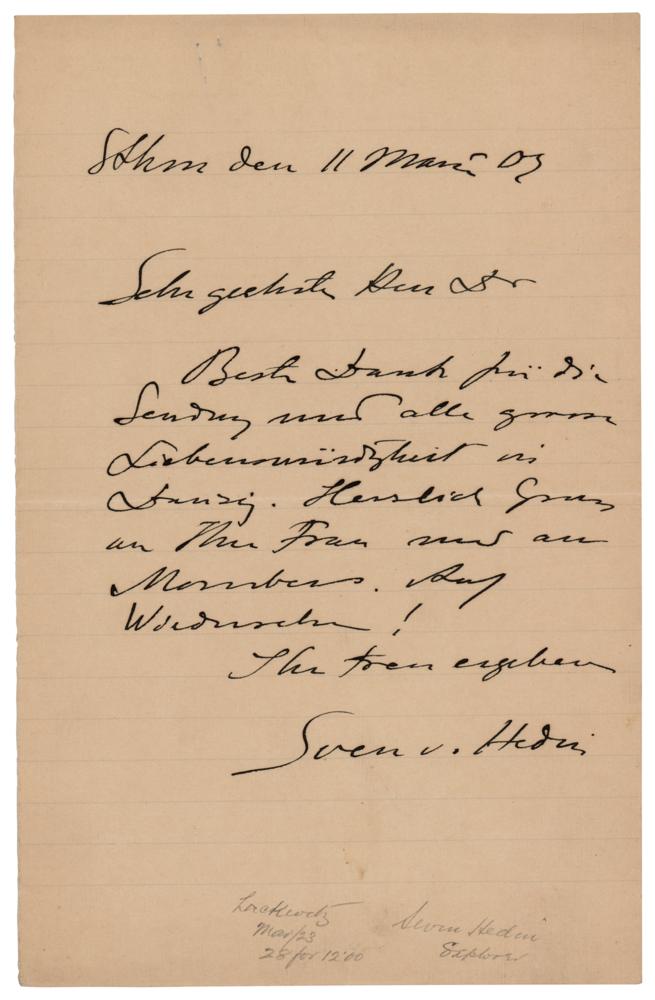 Sthm den 11 März 03
Sehr geehrter Herr Dr
Besten Dank für die
Sendung und alle grosse
Liebenswürdigkeit in
Danzig. Herzlich Gruss
an Ihre Frau und an
Auf
Wiedersehen!
Ihr treu ergebener
Sven v. Hedin
Mar/23
28 for 12.00
Sven Hedin
Explorer